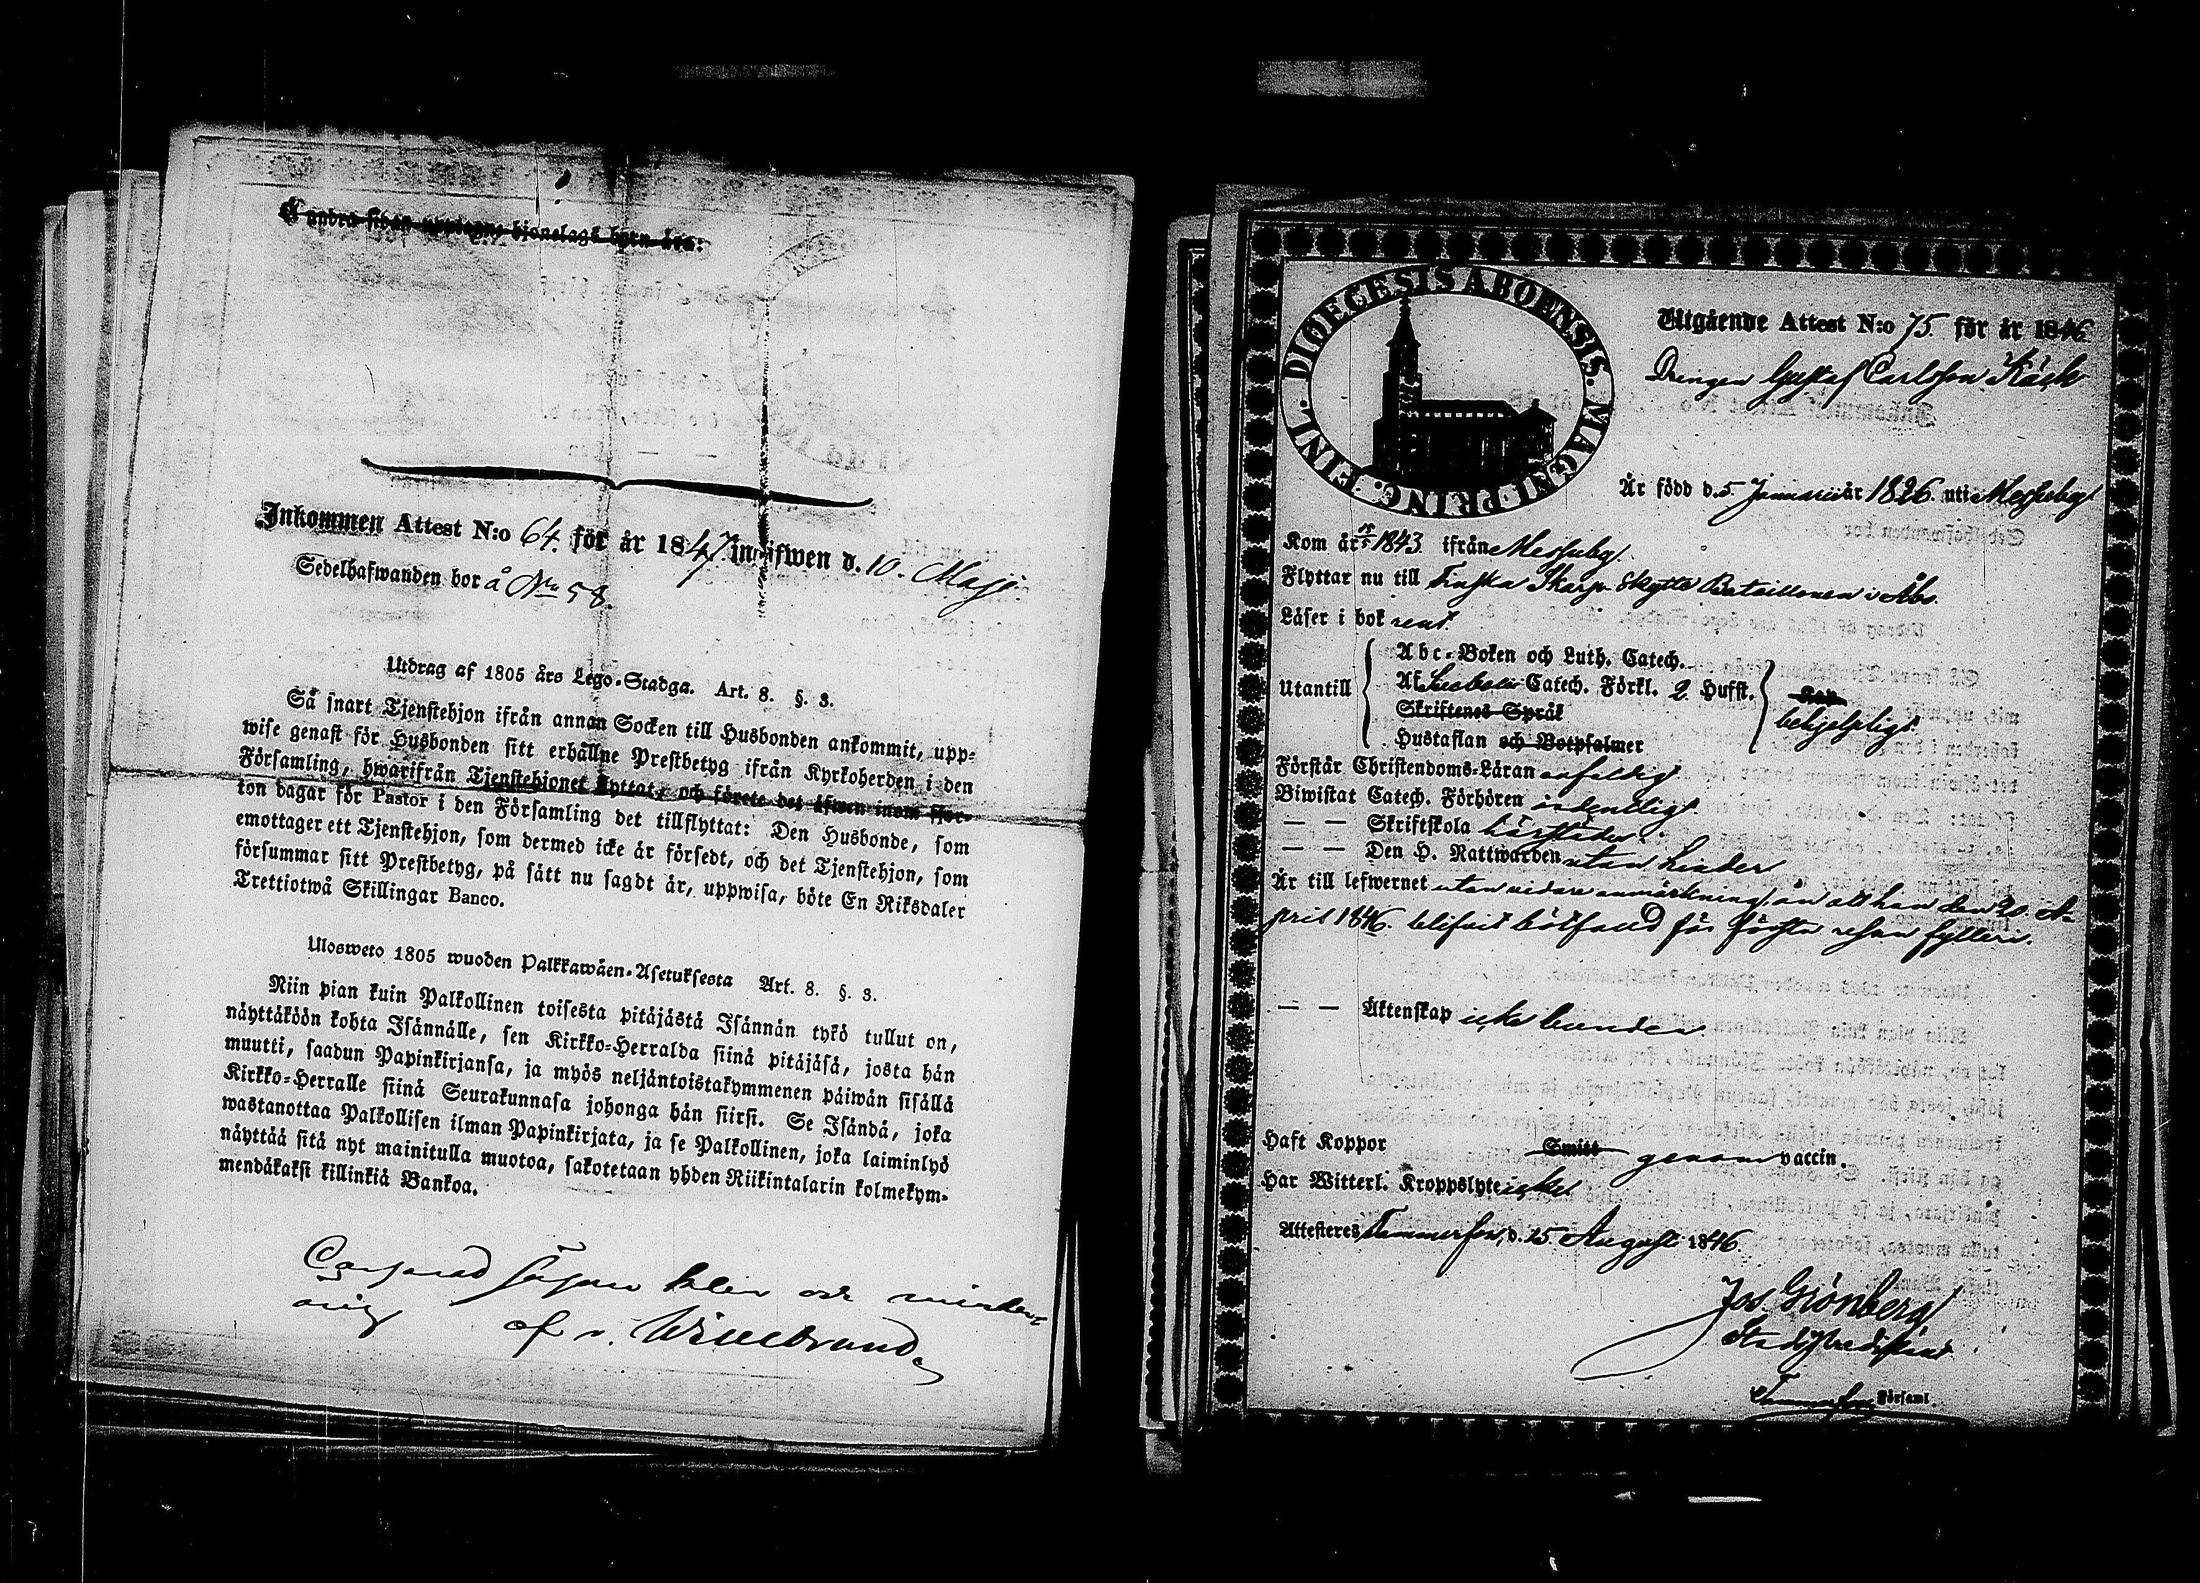 Å andra sidan upptagne hjonelags barn äro:
Inkommen Attest N:o 64. för år 1847. inskrifwen d. 10. Maji.
Sedelhafwanden bor å No 58.
Utdrag af 1805 års Lego-Stadga. Art. 8. §. 3.
Så snart Tjenstehjon ifrån annan Socken till Husbonden ankommit, upp-
wise genast för Husbonden sitt erhållne Prestbetyg ifrån Kyrkoherden i den
Församling, hwarifrån Tjenstehjonet flyttat, och förete det äfwen inom fjor-
ton dagar för Pastor i den Församling det tillflyttat: Den Husbonde, som
emottager ett Tjenstehjon, som dermed icke är försedt, och det Tjenstehjon, som
försummar sitt Prestbetyg, på sätt nu sagdt är, uppwisa, böte En Riksdaler
Trettiotwå Skillingar Banco.
Ulosweto 1805 wuoden Palkkawäen-Asetuksesta Art. 8. §. 3.
Niin pian kuin Palkollinen toisesta pitäjästä Isännän tykö tullut on,
näyttäköön kohta Isännälle, sen Kirkko-Herralda siinä pitäjäsä, josta hän
muutti, saadun Papinkirjansa, ja myös neljäntoistakymmenen päiwän sisällä
Kirkko-Herralle siinä Seurakunnasa johonga hän siirsi. Se Isändä, joka
wastanottaa Palkollisen ilman Papinkirjata, ja se Palkollinen, joka laiminlyö
näyttää sitä nyt mainitulla muotoa, sakotetaan yhden Riikintalarin kolmekym-
mendäkaksi killinkiä Bankoa.
af v. Willebrand
DIOECESIS ABOENSIS. MAGNI. PRINC. FINL.
Utgående Attest N:o 75 för år 1846
Drengen Gustaf Carlsson Käck
Är född d. 5. Januarii år 1826 uti Messuby
Kom år 1843 ifrån Messuby.
Flyttar nu till Finska Skarp Skytte Bataillonen i Åbo.
Läser i bok rent
Utantill
Abc-Boken och Luth. Catech.
Af Svebelii Catech. Förkl. 2. Hufst.
Skriftenes Språk
Hustaflan och Botpsalmer
behjelpligt.
Förstår Christendoms-Läran enfaldigt
Biwistat Catech. Förhören ordentligt.
— — Skriftskola härstädes.
— — Den H. Nattwarden utan hinder
Är till lefwernet utan vidare anmärkning, än att han den 20. A-
pril 1846. blifvit bötfälld för första resan fylleri.
— — Äktenskap icke bunden.
Haft Koppor Smitt genom vaccin.
Har Witterl. Kroppslyte icke.
Attesteres Tammerfors, d. 15 Augusti 1846.
Jos. Grönberg
Tammerfors Församl.